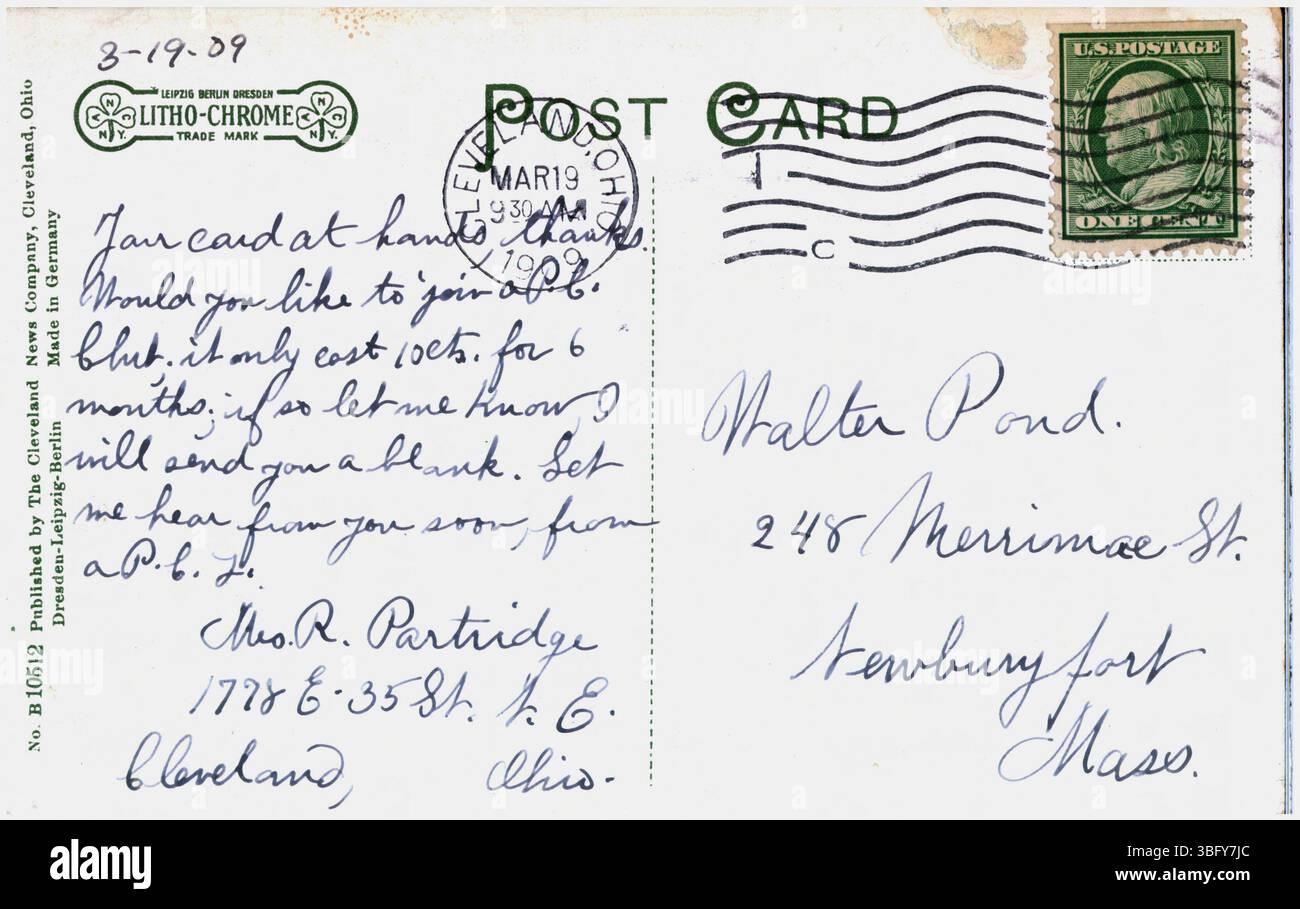 3-19-09
LEIPZIG BERLIN DRESDEN
LITHO-CHROME
TRADE MARK
POST CARD
CLEVELAND, OHIO
MAR 19
9 30 AM
1909
U.S. POSTAGE
ONE CENT
C
Your card at hand thanks.
Would you like to join a P.C.
Club, it only cost 10cts. for 6
months; if so let me know, I
will send you a blank. Let
me hear from you soon, from
a P.C.
R. Partridge
1778 E. 35 St. N. E.
Cleveland, Ohio.
Walter Pond.
248 Merrimac St.
Newburyport
Mass.
No. B 10512 Published by The Cleveland News Company, Cleveland, Ohio
Dresden-Leipzig-Berlin Made in Germany
alamy
Image ID: 3BFY7JC
www.alamy.com